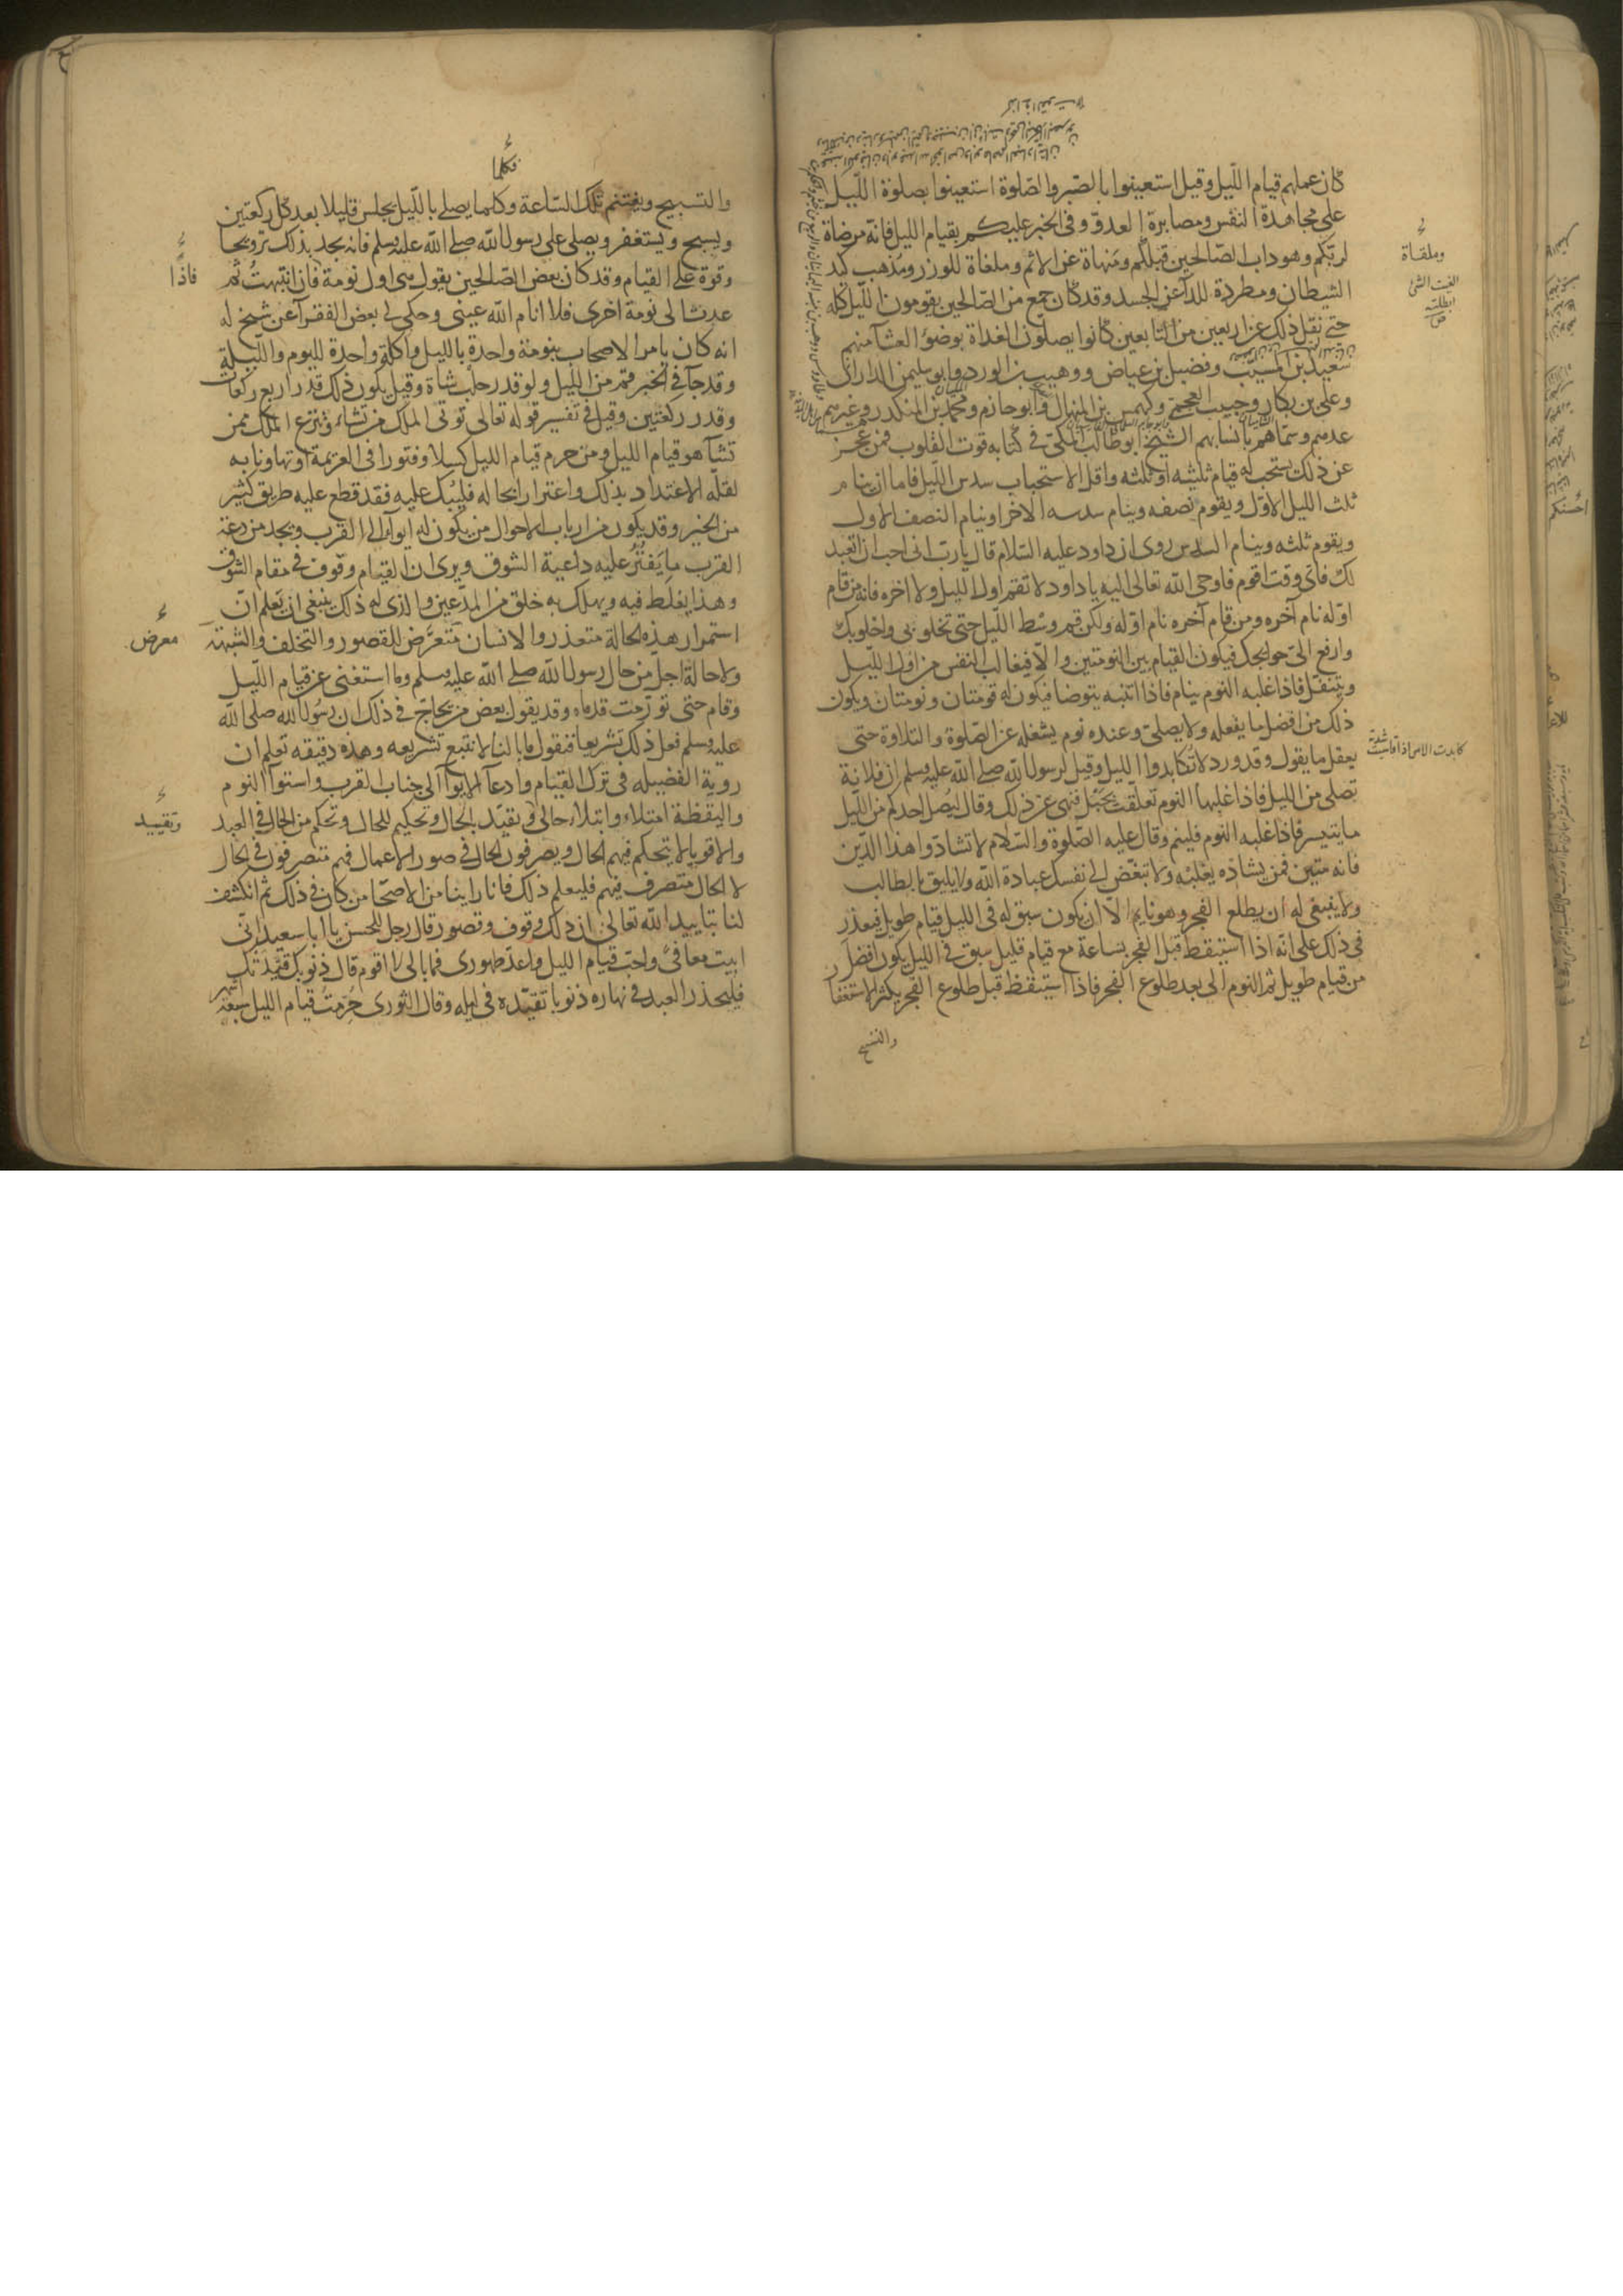 كان عملهم قيام الليل وقيل استعينوا بالصبر والصلوة استعينوا بصلوة الليل
على مجاهدة النفس ومصابرة العدو وفى الخبر عليكم بقيام الليل فانه مرضاة
لربكم وهو داب الصالحين قبلكم ومنهاة عن الاثم وملغاة للوزر ومذهب كيد
الشيطان ومطردة للدآ عن الجسد وقد كان جمع من الصالحين يقومون الليل كله
حتى نقل ذلك عن اربعين من التابعين كانوا يصلون الغداة بوضوء العشآ منهم
سعيد بن المسيب وفضيل بن عياض ووهيب بن الورد وابو سليمن الدارانى
وعلى بن بكار وحبيب العجمى وكهمس بن المنهال وابو حازم ومحمد بن المنكدر وغيرهم
عدهم وسماهم بانسابهم الشيخ ابو طالب المكى فى كتابه قوت القلوب فمن عجز
عن ذلك يستحب له قيام ثلثيه او ثلثه واقل الاستحباب سدس الليل فاما ان ينام
ثلث الليل الاول ويقوم نصفه وينام سدسه الاخر او ينام النصف الاول
ويقوم ثلثه وينام السدس روى ان داود عليه السلام قال يا رب انى احب ان اتعبد
لك فاى وقت اقوم فاوحى الله تعالى اليه يا داود لا تقم اول الليل ولا اخره فانه من قام
اوله نام آخره ومن قام آخره نام اوله ولكن قم وسط الليل حتى تخلو بى واخلو بك
وارفع الىّ حوايجك فيكون القيام بين النومتين والا فيغالب النفس من اول الليل
ويتنفل فاذا غلبه النوم ينام فاذا انتبه يتوضا فيكون له قومتان ونومتان ويكون
ذلك من افضل ما يفعله ولا يصلى وعنده نوم يشغله عن الصلوة والتلاوة حتى
يعقل ما يقول وقد ورد لا تكابدوا الليل وقيل لرسول الله صلى الله عليه وسلم ان فلانة
تصلى من الليل فاذا غلبها النوم تعلقت بحبل فنهى عن ذلك وقال ليصل احدكم من الليل
ما يتيسر فاذا غلبه النوم فلينم وقال عليه الصلوة والسلام لا تشادوا هذا الدين
فانه متين فمن يشاده يغلبه ولا تبغض الى نفسك عبادة الله ولا يليق بالطالب
ولا ينبغى له ان يطلع الفجر وهو نايم الا ان يكون سبق له فى الليل قيام طويل فيعذر
فى ذلك على انه اذا استيقظ قبل الفجر بساعة مع قيام قليل سبق فى الليل يكون افضل
من قيام طويل ثم النوم الى بعد طلوع الفجر فاذا استيقظ قبل طلوع الفجر يكثر الاستغفار
والتسبيح
وملقاة
الغيت الشئ
ابطلته
ص
كابدت الامر اذا قاسيت شدته
فكلما
والتسبيح ويغتنم تلك الساعة وكلما يصلى بالليل يجلس قليلا بعد كل ركعتين
ويسبح ويستغفر ويصلى على رسول الله صلى الله عليه وسلم فانه يجد بذلك ترويحا
وقوة على القيام وقد كان بعض الصالحين يقول هى اول نومة فان انتبهت ثم
عدت الى نومة اخرى فلا انام الله عينى وحكى لى بعض الفقرآ عن شيخ له
انه كان يامر الاصحاب بنومة واحدة بالليل واكلة واحدة لليوم والليلة
وقد جآ فى الخبر قم من الليل ولو قدر حلب شاة وقيل يكون ذلك قدر اربع ركعات
وقدر ركعتين وقيل فى تفسير قوله تعالى توتى الملك من تشاء وتنزع الملك ممن
تشآ هو قيام الليل ومن حرم قيام الليل كسلا وفتورا فى العزيمة او تهاونا به
لقلة الاعتداد بذلك واغترارا بحاله فليبك عليه فقد قطع عليه طريق كثير
من الخير وقد يكون من ارباب الاحوال من يكون له ايوآء الى القرب ويجد من دعة
القرب ما يفتر عليه داعية الشوق ويرى ان القيام وقوف فى مقام الشوق
وهذا يغلط فيه ويهلك به خلق من المدعين والذى له ذلك ينبغى ان يعلم ان
استمرار هذه الحالة متعذر والانسان متعرض للقصور والتخلف والشبهة
ولا حالة اجل من حال رسول الله صلى الله عليه وسلم وما استغنى عن قيام الليل
وقام حتى تورمت قدماه وقد يقول بعض من يحاج فى ذلك ان رسول الله صلى الله
عليه وسلم فعل ذلك تشريعا فنقول ما بالنا لا نتبع تشريعه وهذه دقيقة تعلم ان
روية الفضيلة فى ترك القيام وادعآ الايوآ الى جناب القرب واستوآ النوم
واليقظة امتلاء وابتلاء حالى وتقيد بالحال وتحكيم للحال وتحكم من الحال فى العبد
والاقويا لا يتحكم فيهم الحال ويصرفون الحال فى صور الاعمال فهم متصرفون فى الحال
لا الحال متصرف فيهم فليعلم ذلك فانا راينا من الاصحاب من كان فى ذلك ثم انكشف
لنا بتاييد الله تعالى ان ذلك وقوف وقصور قال رجل للحسن يا ابا سعيد انى
ابيت معافى واحب قيام الليل واعد طهورى فما بالى لا اقوم قال ذنوبك قيدتك
فليحذر العبد فى نهاره ذنوبا تقيده فى ليله وقال الثورى حرمت قيام الليل سبعة
اشهر
فاذا
معرض
وتقييد